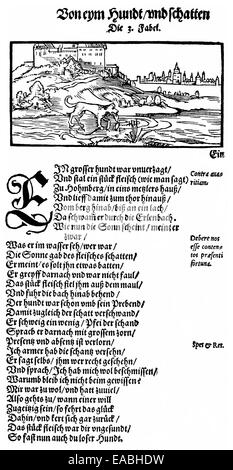 Von eym Hundt/vnd schatten
Die 3. Fabel.
Ein
EIN grosser hundt war vnuerzagt/
Vnd stal ein stück fleisch (wie man sagt)
Zu Hohnberg/in eins metzlers hauß/
Vnd lieff damit zum thor hinauß/
Vom berg hinab/biß an ein lach/
Da schwam er durch die Erlenbach.
Wie nun die Sonn scheint/ meint er
zwar/
Was er im wasser seh/ wer war/
Die Sonne gab des fleisches schatten/
Er meint/ es solt jhn etwas batten/
Er greyff darnach vnd war nicht faul/
Das stück fleisch fiel jhm auß dem maul/
Vnd fuhr die bach hinab behend/
Der hundt war schon vmb sein Prebend/
Damit zugleich der schatt verschwand/
Er schweig ein wenig/ Pfei der schand
Sprach er darnach mit grossem zorn/
Presentz vnd absentz ist verlorn/
Ich armer hab die schantz versehn/
Er sagt selbs/ jhm wer recht geschehn/
Vnd sprach/ Ich hab mich wol beschmissen/
Warumb bleib ich nicht beim gewissen
Mir war zu wol/ vnd hatt zuuiel/
Also gehts zu/ wann einer will
Zugeitzig sein/ so fehrt das glück
Dahin/ vnd kert sich gar zurück/
Das stück fleisch war dir vngesundt/
So fast nun auch du loser Hundt.
Contra auaritiam.
Debere nos esse contentos præsenti fortuna.
Spes & Res.
alamy
EABHDW
www.alamy.com